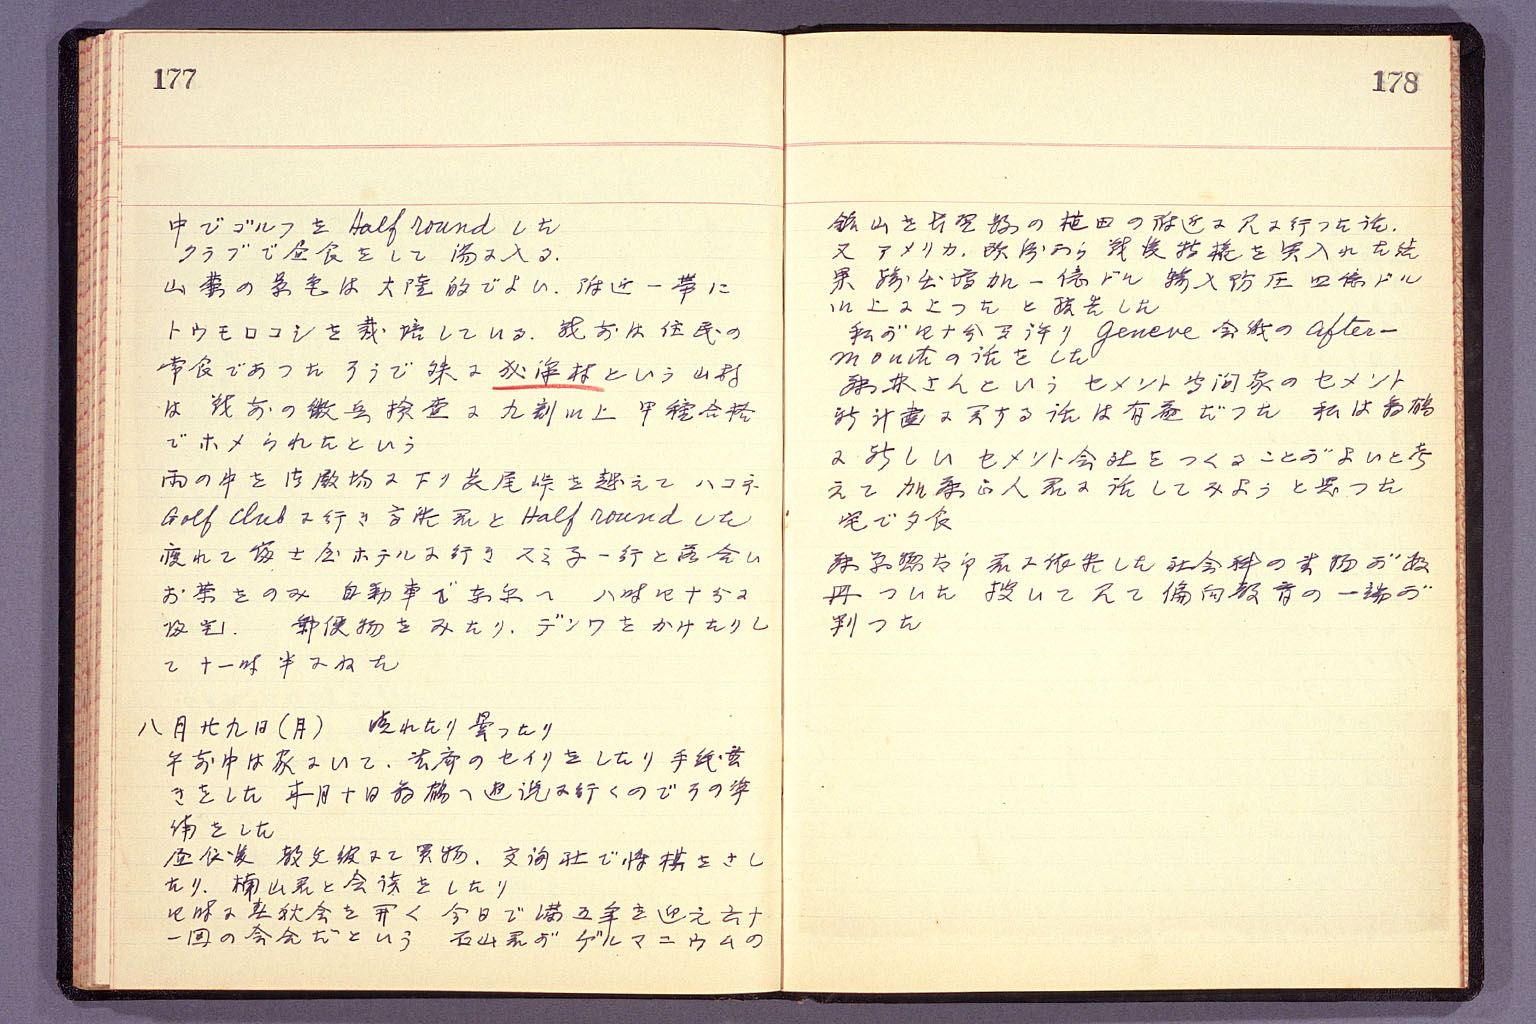 177
中でゴルフを Half round した
クラブで昼食をして湯に入る.
山麓の景色は大陸的でよい. 附近一帯に
トウモロコシを栽培している. 戦前は住民の
常食であつたそうで 殊に という山村
は 戦前の徴兵検査に九割以上 甲種合格
でホメられたという
雨の中を御殿場に下り長尾峠を越えて ハコネ
Golf Club に行き 君と Half round した
疲れて富士屋ホテルに行き スミ子一行と落合い
お茶をのみ 自動車で東京へ 八時四十分に
皈宅. 郵便物をみたり. デンワをかけたりし
て十一時半にねた
八月廿九日(月) 晴れたり曇つたり
午前中は家にいて. 書斎のセイリをしたり手紙書
きをした 来月十日舞鶴へ遊説に行くのでその準
備をした
昼食後 散文級にて買物. 交詢社で将棋をさし
たり. 楠山君と会談をしたり
四時に春秋会を開く 今日で満五年を迎え六十
一回の会合だという 石山君がゲルマニウムの
178
鉱山を長野縣の植田の附近に見に行つた話.
又 アメリカ. 欧洲から 戦後技術を買入れた結
果 輸出増加一億ドル 輸入防圧四億ドル
以上に上つた と報告した
私が四十分間許り Geneve 会議の after-
mouth の話をした
藤井さんという セメント専門家の セメント
新計画に関する話は有益だつた 私は舞鶴
に新しい セメント会社をつくることがよいと考
えて 加藤正人君に話してみようと思つた
宅で夕食
君に依頼した社会科の書物が数
冊ついた 披いて見て偏向教育の一端が
判つた